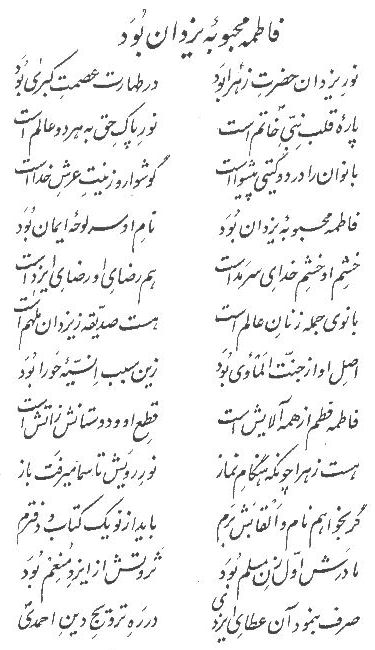 فاطمه محبوبهٔ یزدان بُوَد
نورِ یزدان حضرتِ زهرا بُوَد در طهارت عصمتِ کبریٰ بُوَد
پارهٔ قلبِ نبیّ خاتم است نورِ پاکِ حق به هر دو عالم است
بانوان را در دو گیتی پیشواست گوشوار و زینتِ عرشِ خداست
فاطمه محبوبهٔ یزدان بُوَد نامِ او سرلوحهٔ ایمان بُوَد
خشمِ او خشمِ خدای سرمد است هم رضایِ او رضایِ ایزد است
بانوی جمله زنانِ عالم است هست صدّیقه ز یزدان ملهم است
اصلِ او از جنّت المأویٰ بُوَد زین سبب اِنسیّهٔ حورا بُوَد
فاطمه فطم از همه آلایش است قطعِ او و دوستانش ز آتش است
هست زهرا چونکه هنگامِ نماز نورِ رویش تا سما میرفت باز
گر بخواهم نام و القابش برم باید از نو یک کتاب و دفترم
مادرش اوّل زنِ مسلم بُوَد ثروتش از ایزدِ مُنعِم بُوَد
صرف بنمود آن عطایِ ایزدی در رهِ ترویجِ دینِ احمدی